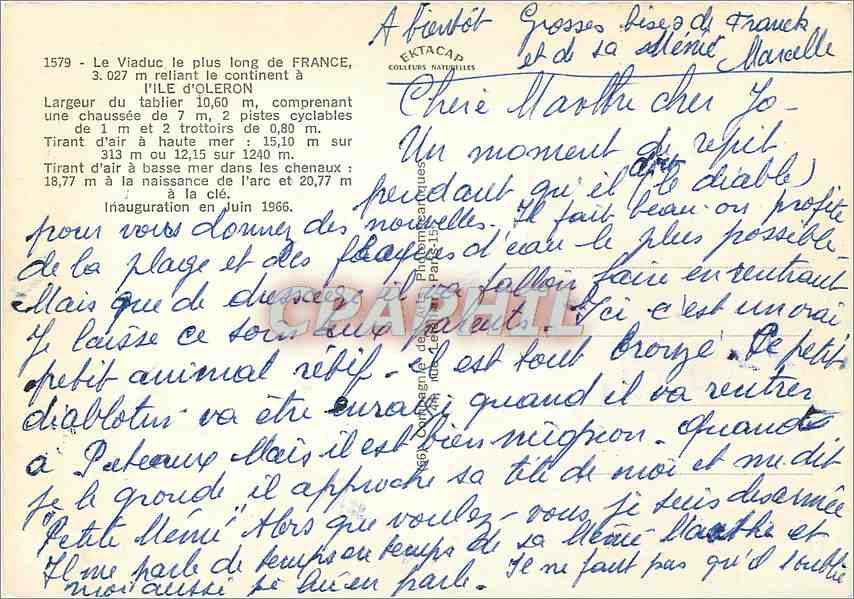 A bientôt Grosses bises de Franck
et de sa Mémé Marcelle
EKTACAP
COULEURS NATURELLES
1579 - Le Viaduc le plus long de FRANCE,
3.027 m reliant le continent à
l'ILE d'OLERON
Largeur du tablier 10,60 m, comprenant
une chaussée de 7 m, 2 pistes cyclables
de 1 m et 2 trottoirs de 0,80 m.
Tirant d'air à haute mer : 15,10 m sur
313 m ou 12,15 sur 1240 m.
Tirant d'air à basse mer dans les chenaux :
18,77 m à la naissance de l'arc et 20,77 m
à la clé.
Inauguration en Juin 1966.
Chère Marthe cher Jo -
Un moment de répit
pendant qu'il dort (le diable)
pour vous donner des nouvelles. Il fait beau on profite
de la plage et des d'eau le plus possible -
Mais que de dressage il va falloir faire en rentrant
Je laisse ce soin aux parents. Ici c'est un vrai
petit animal rétif - il est tout bronzé. Le petit
diablotin va être enragé quand il va rentrer
à Puteaux Mais il est bien mignon. Quand
je le gronde il approche sa tête de moi et me dit
"Petite Mémé" Alors que voulez-vous je suis desarmée
Il me parle de temps en temps de sa Mémé Marthe et
moi aussi je lui en parle. Il ne faut pas qu'il oublie
CAPHIL
Compagnie des Arts Photomécaniques